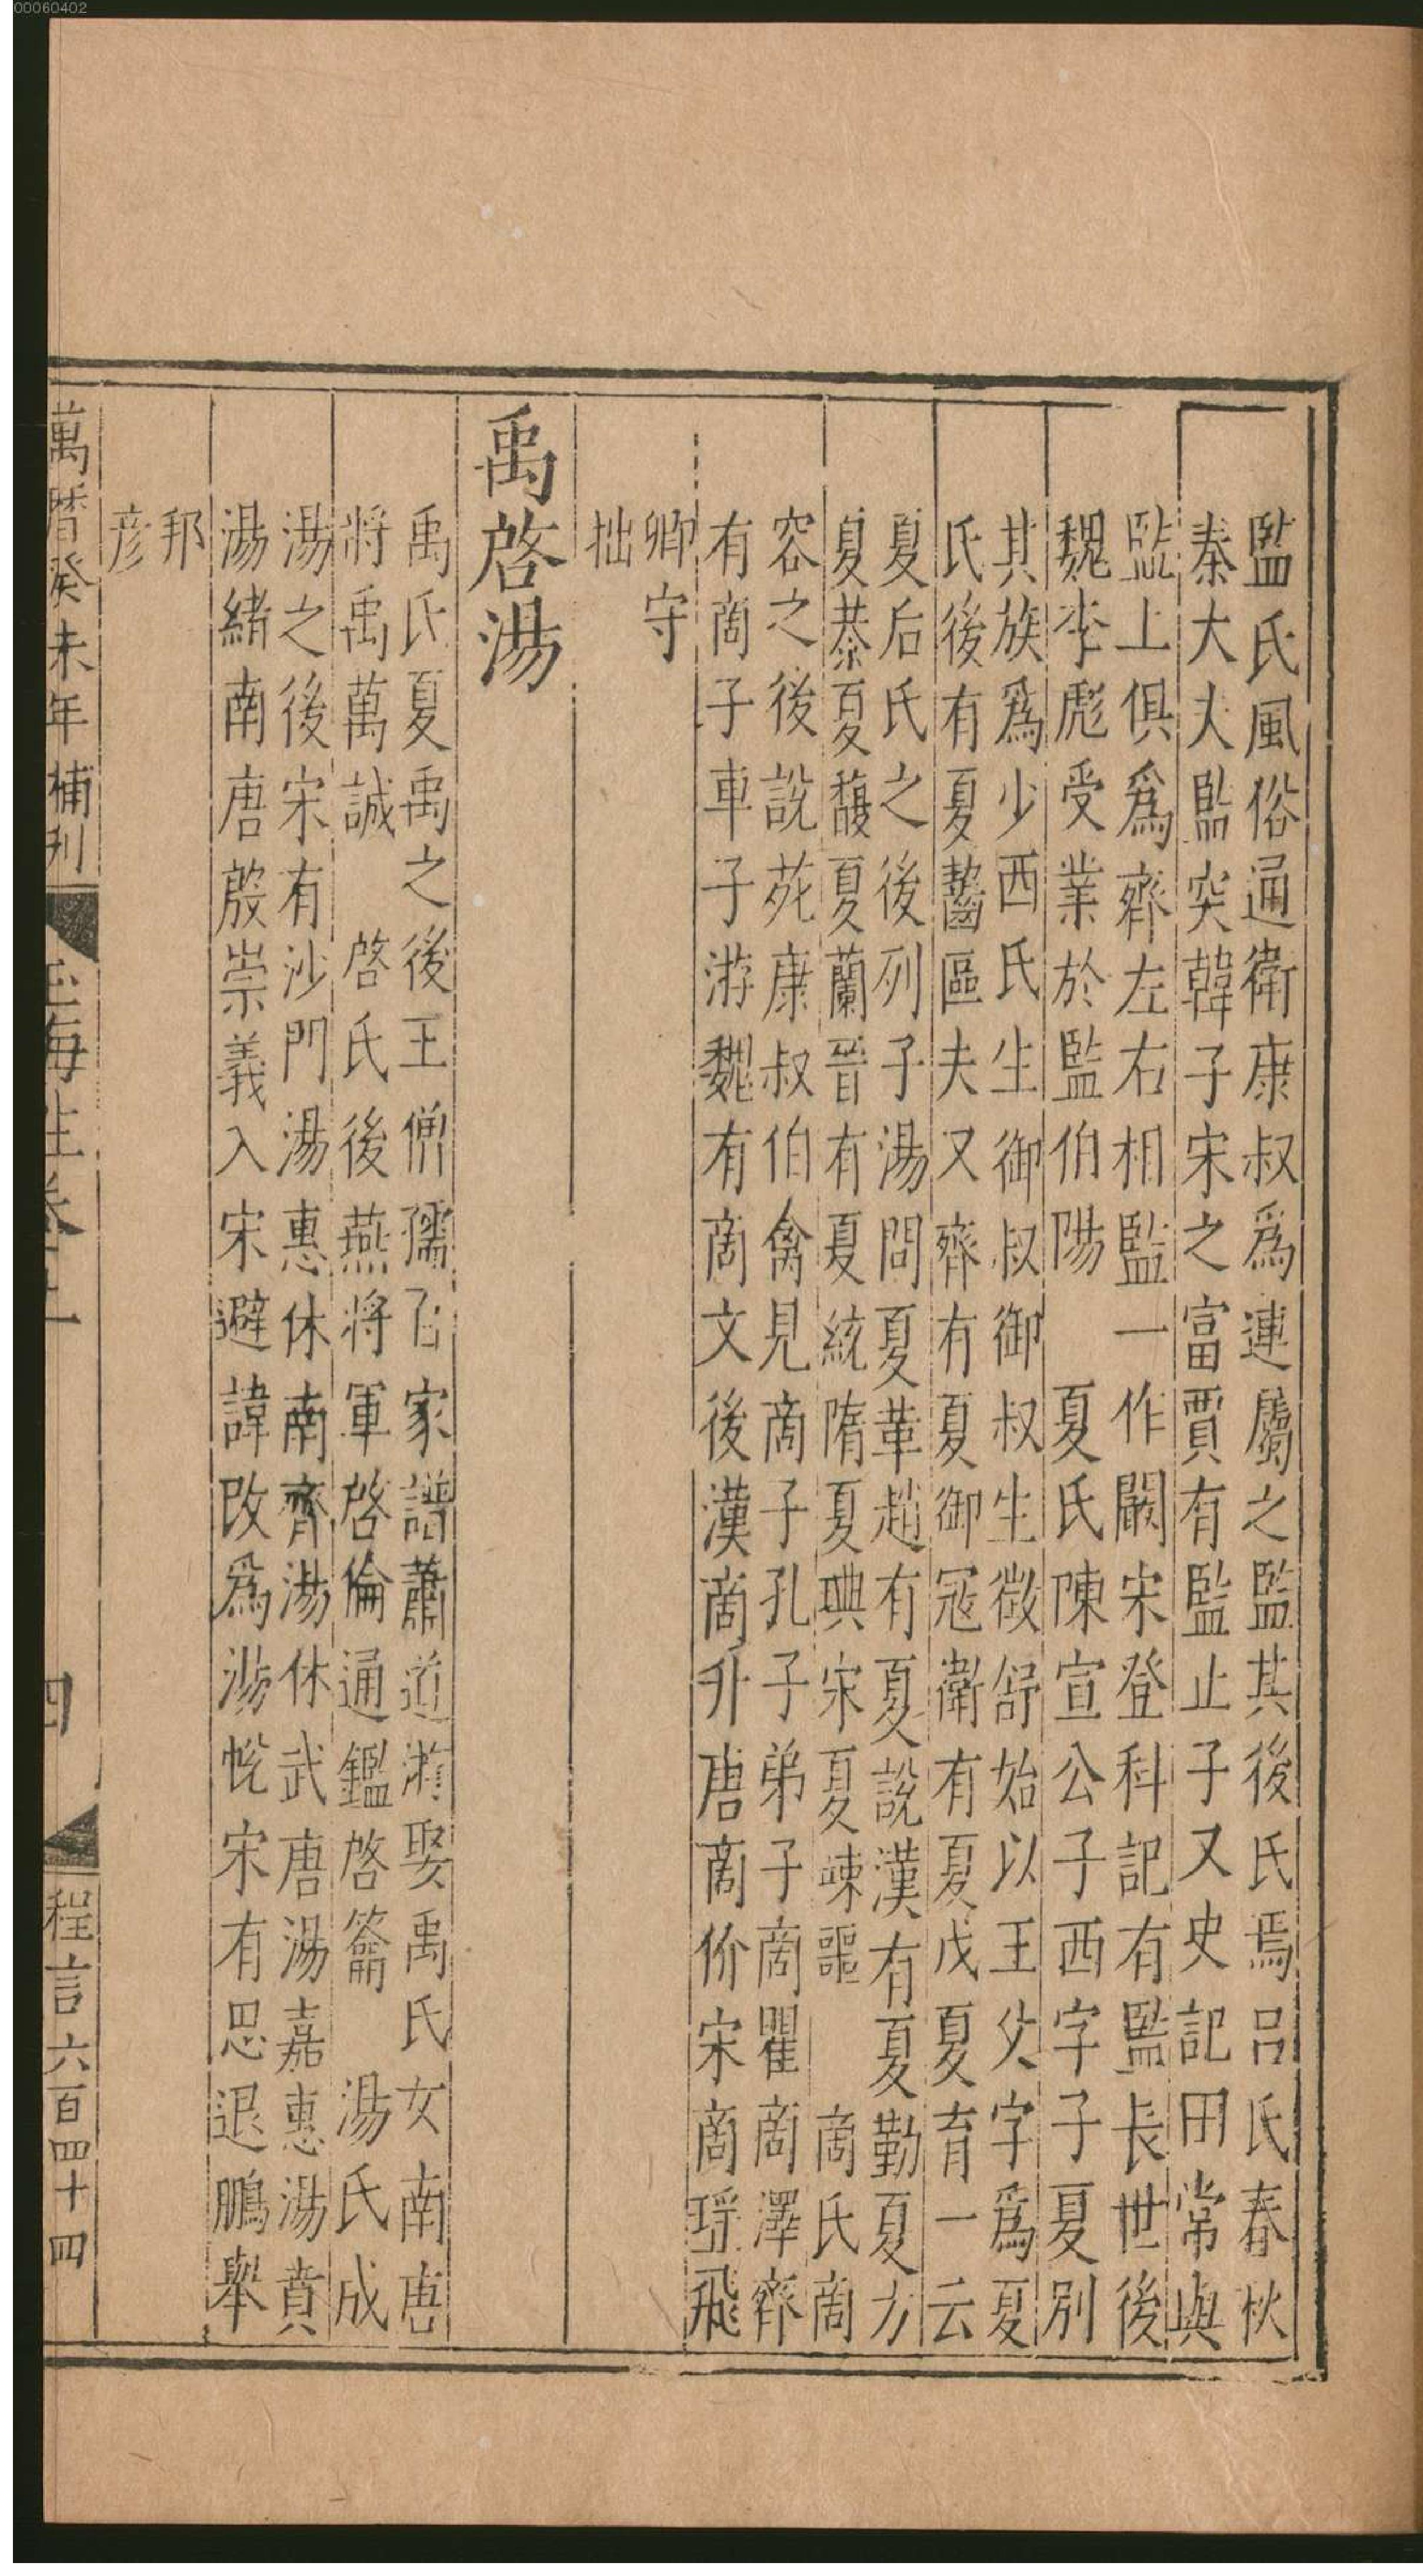 00060402
監氏風俗通衛康叔為連屬之監其後氏焉呂氏春秋
秦大夫監突韓子宋之富賈有監止子又史記田常與
監上俱爲齊左右相監一作闞宋登科記有監長世後
魏李彪受業於監伯陽 夏氏陳宣公子西字子夏別
其族爲少西氏生御叔御叔生徵舒始以王父字爲夏
氏後有夏齧區夫又齊有夏御寇衛有夏戊夏育一云
夏后氏之後列子湯問夏革趙有夏說漢有夏勤夏方
夏恭夏馥夏蘭晉有夏統隋夏琠宋夏竦謳 商氏商
容之後說苑康叔伯禽見商子孔子弟子商瞿商澤齊
有商子車子游魏有商文後漢商升唐商价宋商瑶飛
卿守
拙
禹啓湯
禹氏夏禹之後王僧孺百家譜蕭道游娶禹氏女南唐
將禹萬誠 啓氏後燕將軍啓倫通鑑啓啓籥 湯氏成
湯之後宋有沙門湯惠休南齊湯休武唐湯嘉惠湯賁
湯緒南唐殷崇義入宋避諱改爲湯悅宋有思退鵬舉
邦
彦
萬曆癸未年補刊
玉海
四
程言六百四十四